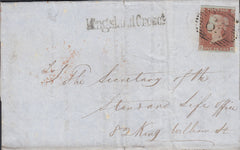 Kingsland Crescent
The Secretary of the
Standard Life Office
82 King William St